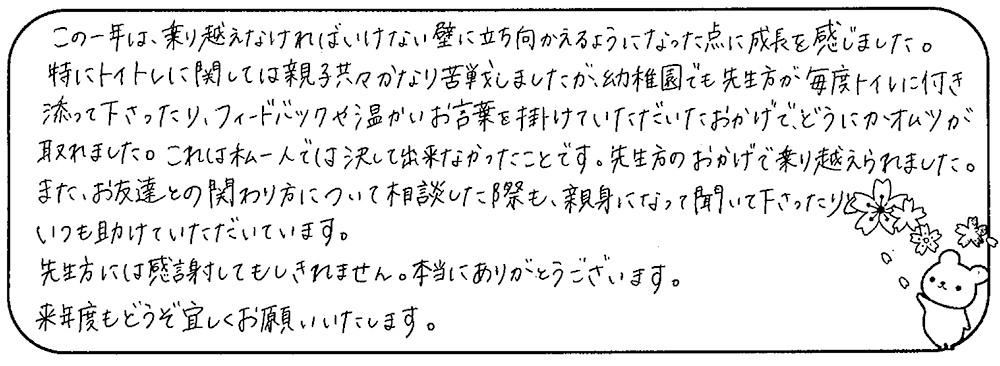 この一年は、乗り越えなければいけない壁に立ち向かえるようになった点に成長を感じました。
特にトイトレに関しては親子共々かなり苦戦しましたが、幼稚園でも先生方が毎度トイレに付き
添って下さったり、フィードバックや温かいお言葉を掛けていただいたおかげで、どうにかオムツが
取れました。これは私一人では決して出来なかったことです。先生方のおかげで乗り越えられました。
また、お友達との関わり方について相談した際も、親身になって聞いて下さったりと
いつも助けていただいています。
先生方には感謝してもしきれません。本当にありがとうございます。
来年度もどうぞ宜しくお願いいたします。